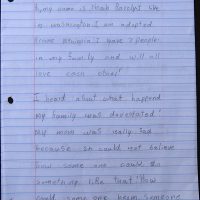 my name is Noah
in Washington I am adopted
from Ethiopia I have 7 people
in my family and will all
love each other!
I heard about what happend
my family was devestated!
My mom was really sad
because she could not believe
how some one could do
something like that! How
could some one harm someone